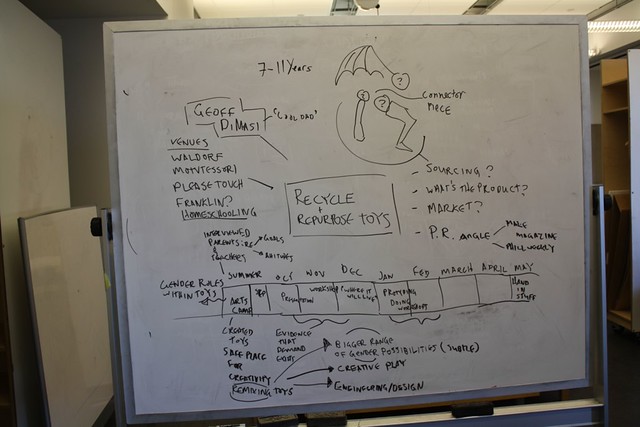 7-11 Years
GEOFF
DiMASi
"COOL DAD"
CONNECTOR
PIECE
VENUES
WALDORF
MONTESSORI
PLEASE TOUCH
FRANKLIN?
HOMESCHOOLING
RECYCLE
+
REPURPOSE TOYS
- SOURCING?
- WHAT'S THE PRODUCT?
- MARKET?
- P.R. ANGLE
MAKE
MAGAZINE
PHILLY WEEKLY
INTERVIEWED
PARENTS: RE
TEACHERS
GOALS
GENDER RULES
WITHIN TOYS
SUMMER
OCT
NOV
DEC
JAN
FEB
MARCH
APRIL
MAY
ARTS
CAMP
WORKSHOP
PRETTY
DOING
WORKSHOP
HAND
IN
STUFF
CREATED
TOYS
SAFE PLACE
FOR
CREATIVITY
REMIXING TOYS
EVIDENCE
THAT
DEMAND
BIGGER RANGE
OF GENDER POSSIBILITIES (SUBTLE)
CREATIVE PLAY
ENGINEERING/DESIGN